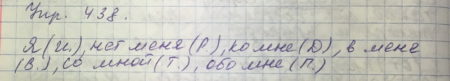 Упр. 438.
Я (И.), нет меня (Р), ко мне (Д), в меня
(В.), со мной (Т.), обо мне (П.)